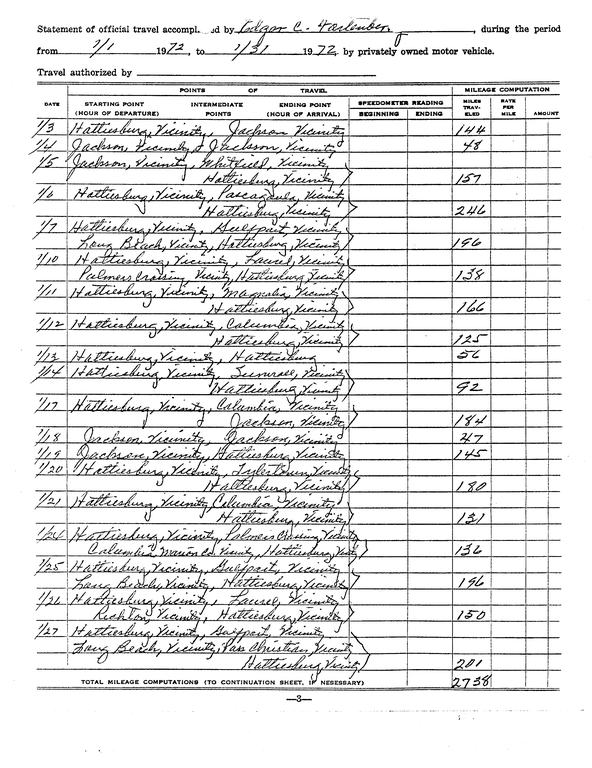 Statement of official travel accompl  ed by Edgar C. Fortenberry, during the period
from 1/1 1972, to 1/31 1972 by privately owned motor vehicle.
Travel authorized by
POINTS OF TRAVEL MILEAGE COMPUTATION
DATE STARTING POINT (HOUR OF DEPARTURE) INTERMEDIATE POINTS ENDING POINT (HOUR OF ARRIVAL) SPEEDOMETER READING BEGINNING ENDING MILES TRAV- ELED RATE PER MILE AMOUNT
1/3 Hattiesburg, Vicinity, Jackson Vicinity 144
1/4 Jackson, Vicinity, Jackson, Vicinity 48
1/5 Jackson, Vicinity, Whitfield, Vicinity,
Hattiesburg, Vicinity 157
1/6 Hattiesburg, Vicinity, Pascagoula, Vicinity
Hattiesburg, Vicinity 246
1/7 Hattiesburg, Vicinity, Gulfport, Vicinity,
Long Beach, Vicinity, Hattiesburg, Vicinity 196
1/10 Hattiesburg, Vicinity, Laurel, Vicinity
Palmers Crossing, Vicinity, Hattiesburg Vicinity 138
1/11 Hattiesburg, Vicinity, Magnolia, Vicinity
Hattiesburg, Vicinity 166
1/12 Hattiesburg, Vicinity, Columbia, Vicinity
Hattiesburg, Vicinity 125
1/13 Hattiesburg, Vicinity, Hattiesburg 56
1/14 Hattiesburg, Vicinity, Sumrall, Vicinity
Hattiesburg, Vicinity 92
1/17 Hattiesburg, Vicinity, Columbia, Vicinity
Jackson, Vicinity 184
1/18 Jackson, Vicinity, Jackson, Vicinity 47
1/19 Jackson, Vicinity, Hattiesburg, Vicinity 145
1/20 Hattiesburg, Vicinity, Tylertown, Vicinity
Hattiesburg, Vicinity 180
1/21 Hattiesburg, Vicinity Columbia, Vicinity
Hattiesburg, Vicinity 131
1/24 Hattiesburg, Vicinity, Palmers Crossing, Vicinity
Columbia, Marion Co. Vicinity, Hattiesburg, Vicinity 136
1/25 Hattiesburg, Vicinity, Gulfport, Vicinity
Long Beach, Vicinity, Hattiesburg, Vicinity 196
1/26 Hattiesburg, Vicinity, Laurel, Vicinity
Richton, Vicinity, Hattiesburg, Vicinity 150
1/27 Hattiesburg, Vicinity, Gulfport, Vicinity
Long Beach, Vicinity, Pass Christian, Vicinity
Hattiesburg, Vicinity 201
TOTAL MILEAGE COMPUTATIONS (TO CONTINUATION SHEET, IF NESESSARY) 2738
—3—